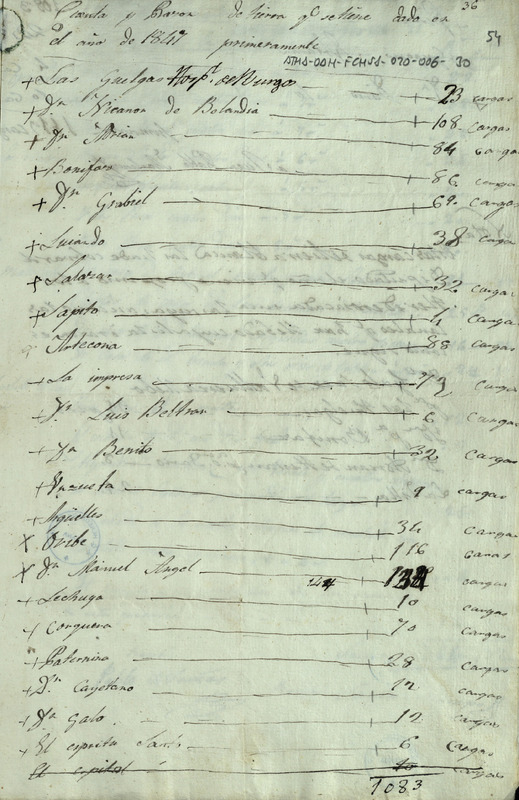 36
54
Cuenta y Razon de tierra q.e se tiene dada en
el año de 1847 primeramente
ATHA-DOH-FCHSS-070-006-30
+ Las guelgas Hosp.l de Burgo 23 cargas
+ Dn Nicanor de Bolandia 108 cargas
+ Dn Adrian 84 cargas
+ Bonifas 86 cargas
+ Dn Grabiel 69 cargas
+ Luiando 38 carga
+ Salazar 32 cargas
+ Sapito 4 carga
Artecona 88 cargas
+ La impresa 73 carga
+ Dn Luis Beltran 6 cargas
+ Dn Benito 32 cargas
+ 9 cargas
+ Arguelles 34 cargas
X Oribe 116 cargas
X Dn Manuel Angel 144 cargas
+ Lechuga 10 cargas
+ Corquera 70 cargas
+ Paternina 28 cargas
+ Dn Cayetano 12 cargas
+ Dn Galo 12 cargas
+ El espritu Santo 6 cargas
El espital 40 cargas
1083